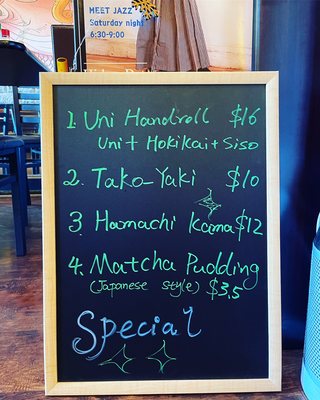 MEET JAZZ
Saturday night
6:30-9:00
1. Uni Handroll $16
Uni + Hokikai + Siso
2. Tako-Yaki $10
3. Hamachi Kama $12
4. Matcha Pudding
(Japanese style) $3.5
Special